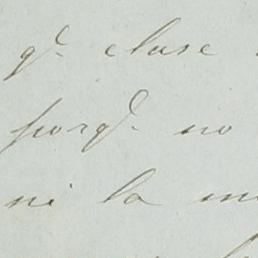 qᵉ. clase
porqᵉ. no
ni la